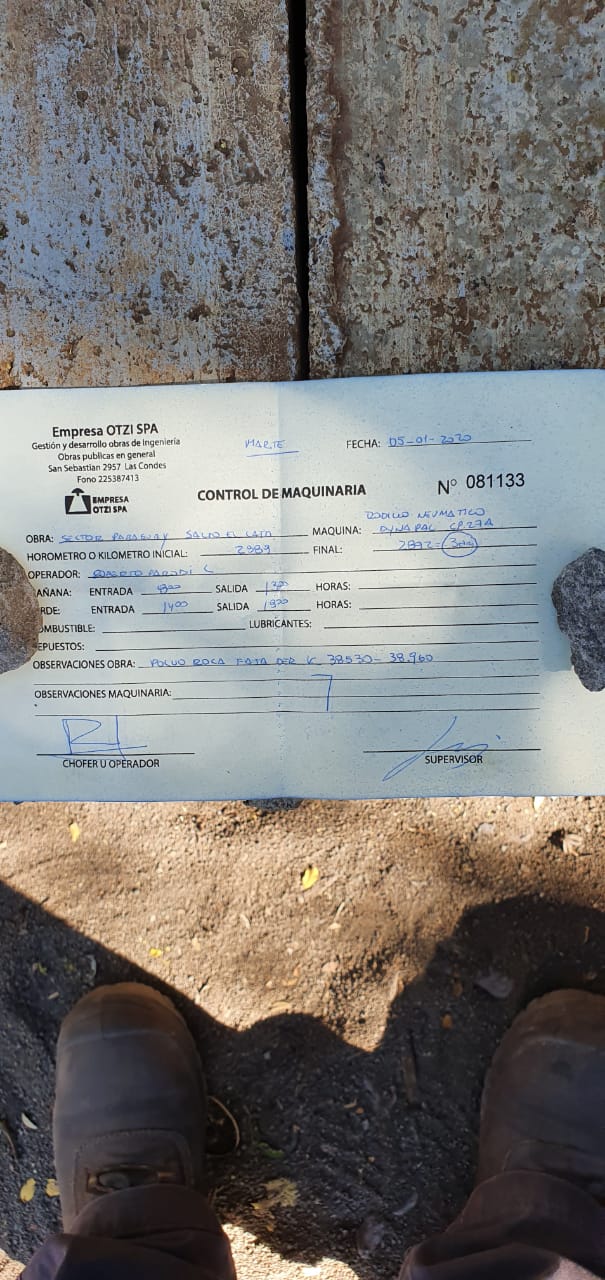 Empresa OTZI SPA
Gestión y desarrollo obras de Ingeniería
Obras publicas en general
San Sebastian 2957 Las Condes
Fono 225387413
EMPRESA
OTZI SPA
MARTE
FECHA: 05-01-2020
CONTROL DE MAQUINARIA
Nº 081133
OBRA: SECTOR PARAGUAY SALTO EL
MAQUINA: RODILLO NEUMATICO
DYNAPAC CP.27A
HOROMETRO O KILOMETRO INICIAL: 2989
FINAL: 2892=
OPERADOR: ROBERTO PARODI C
AÑANA: ENTRADA 800 SALIDA 1300 HORAS:
RDE: ENTRADA 1400 SALIDA 1800 HORAS:
OMBUSTIBLE: LUBRICANTES:
EPUESTOS:
OBSERVACIONES OBRA: POLVO ROCA FAJA DER K 38530- 38.960
OBSERVACIONES MAQUINARIA:
CHOFER U OPERADOR
SUPERVISOR